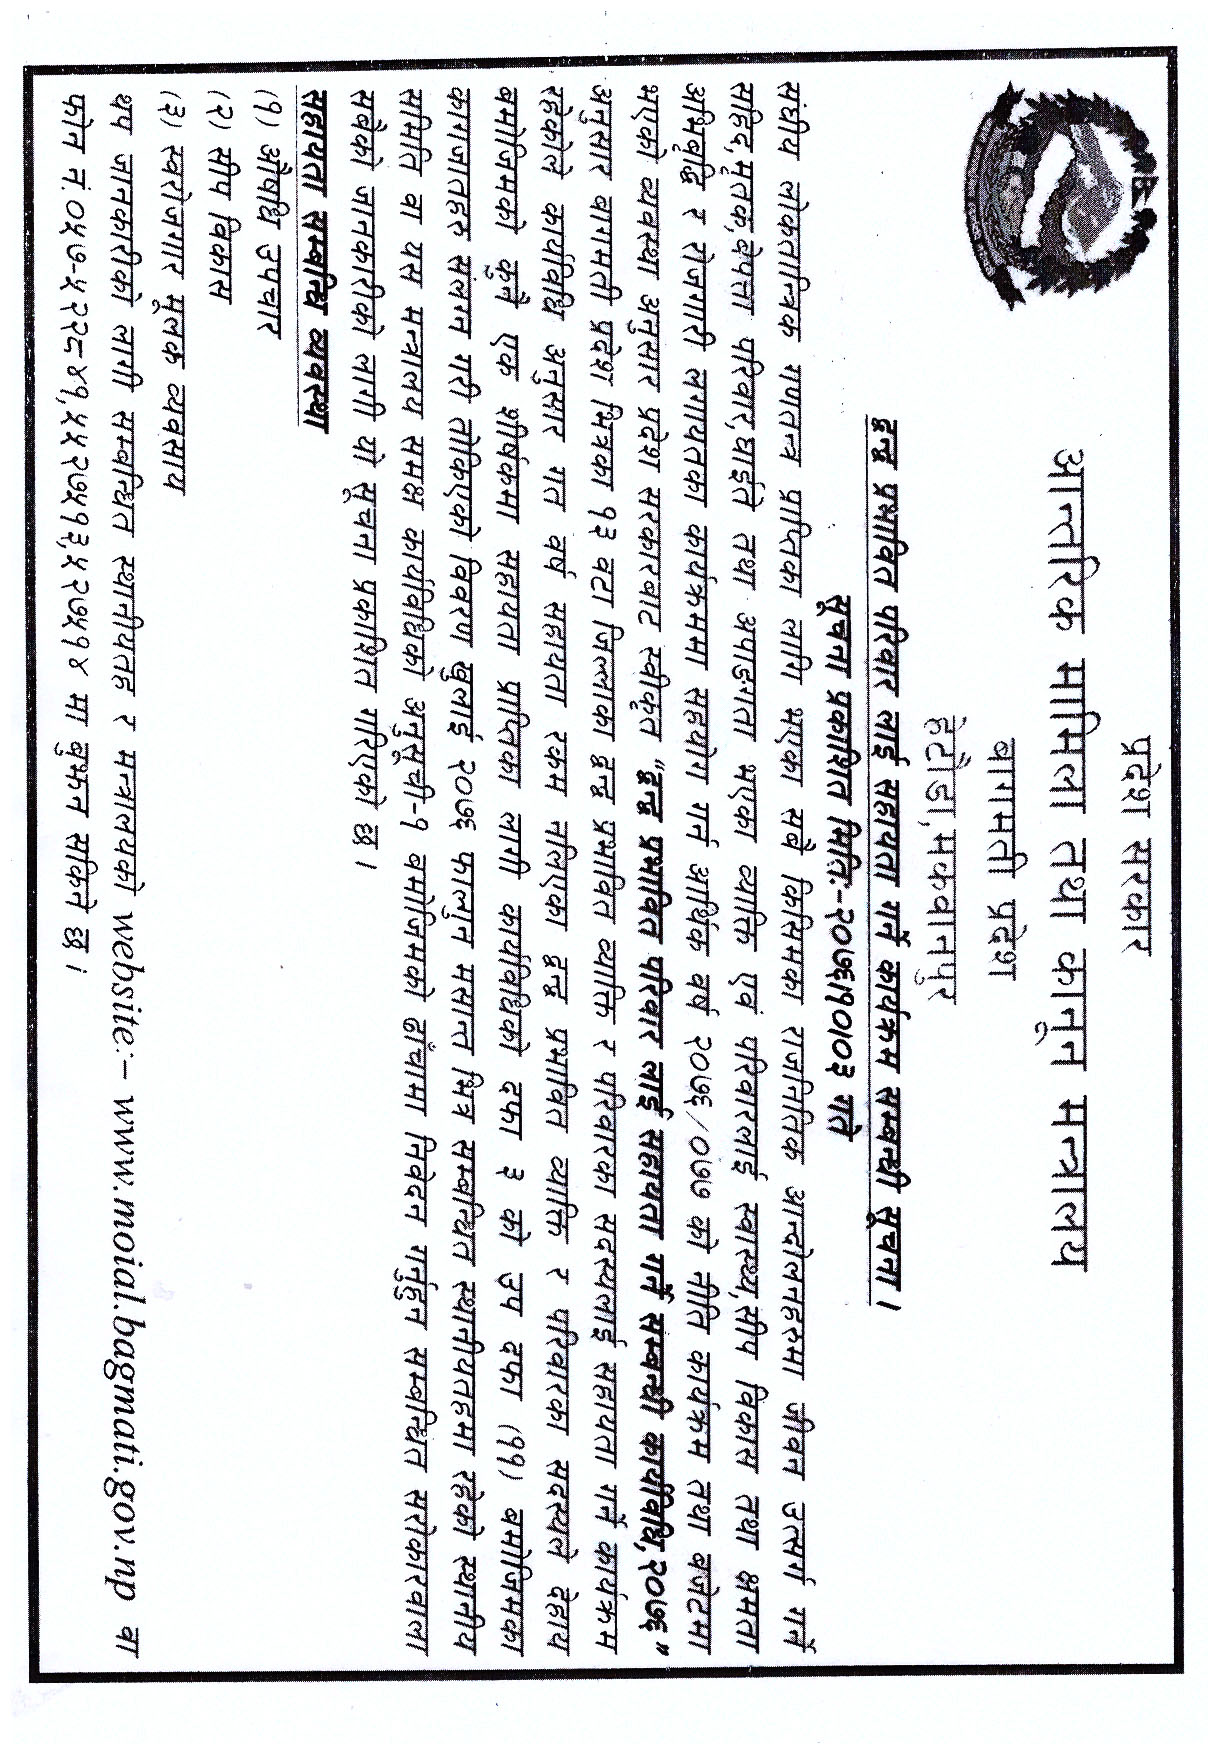 प्रदेश सरकार
आन्तरिक मामिला तथा कानून मन्त्रालय
बागमती प्रदेश
हेटौडा,मकवानपुर
द्वन्द्व प्रभावित परिवार लाई सहायता गर्ने कार्यक्रम सम्बन्धी सूचना ।
सूचना प्रकाशित मितिः-२०७६।१०।०३ गते
संघीय लोकतान्त्रिक गणतन्त्र प्राप्तिका लागि भएका सबै किसिमका राजनितिक आन्दोलनहरुमा जीवन उत्सर्ग गर्ने
सहिद,मृतक,बेपत्ता परिवार,घाईते तथा अपाङ्गता भएका व्याक्ति एवं परिवारलाई स्वास्थ्य,सीप विकास तथा क्षमता
अभिबृद्धि र रोजगारी लगायतका कार्यक्रममा सहयोग गर्न आर्थिक वर्ष २०७६/०७७ को नीति कार्यक्रम तथा बजेटमा
भएको व्यवस्था अनुसार प्रदेश सरकारबाट स्वीकृत "द्वन्द्व प्रभावित परिवार लाई सहायता गर्ने सम्बन्धी कार्यविधि,२०७६"
अनुसार बागमती प्रदेश भित्रका १३ वटा जिल्लाका द्वन्द्व प्रभावित व्याक्ति र परिवारका सदस्यलाई सहायता गर्ने कार्यक्रम
रहेकोले कार्यविधि अनुसार गत वर्ष सहायता रकम नलिएका द्वन्द्व प्रभावित व्याक्ति र परिवारका सदस्यले देहाय
बमोजिमको कुनै एक शीर्षकमा सहायता प्राप्तिका लागी कार्यविधिको दफा ३ को उप दफा (११) बमोजिमका
कागजातहरु संलग्न गरी तोकिएको विवरण खुलाई २०७६ फाल्गुन मसान्त भित्र सम्बन्धित स्थानीयतहमा रहेको स्थानीय
समिति वा यस मन्त्रालय समक्ष कार्यविधिको अनुसूची-१ बमोजिमको ढाँचामा निवेदन गर्नुहुन सम्बन्धित सरोकारवाला
सबैको जानकारीको लागी यो सूचना प्रकाशित गरिएको छ ।
सहायता सम्बन्धि व्यवस्था
(१) औषधि उपचार
(२) सीप विकास
(३) स्वरोजगार मूलक व्यवसाय
थप जानकारीको लागी सम्बन्धित स्थानीयतह र मन्त्रालयको website:- www.moial.bagmati.gov.np वा
फोन नं.०५७-५२८४१,५२७५१३,५२७५१४ मा बुझ्न सकिने छ ।